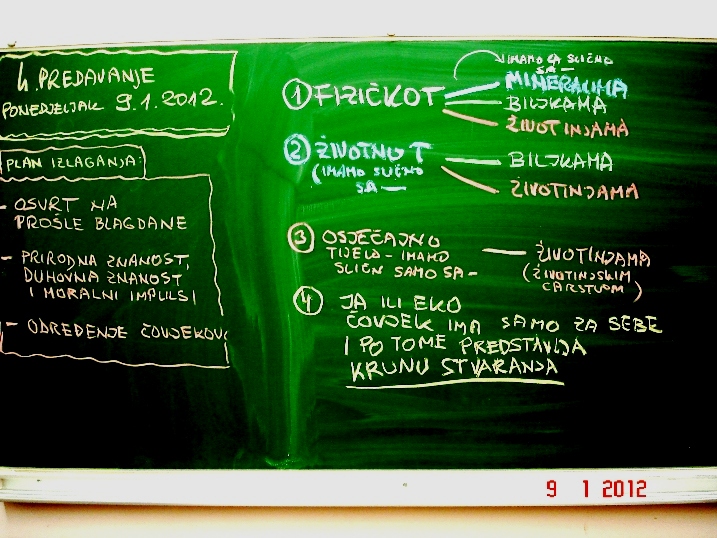 4. PREDAVANJE
PONEDJELJAK 9.1.2012.
PLAN IZLAGANJA:
- OSVRT NA
PROŠLE BLAGDANE
- PRIRODNA ZNANOST,
DUHOVNA ZNANOST
I MORALNI IMPULSI
- ODREĐENJE ČOVJEKOV
1 FIZIČKO T
IMAMO GA SLIČNO
SA —
MINERALIMA
BILJKAMA
ŽIVOTINJAMA
2 ŽIVOTNO T
(IMAMO SLIČNO
SA —
BILJKAMA
ŽIVOTINJAMA
3 OSJEĆAJNO
TIJELO - IMAMO
SLIČN SAMO SA -
ŽIVOTINJAMA
(ŽIVOTINJSKIM
CARSTVOM)
4 JA ILI EKO
ČOVJEK IMA SAMO ZA SEBE
I PO TOME PREDSTAVLJA
KRUNU STVARANJA
9 1 2012